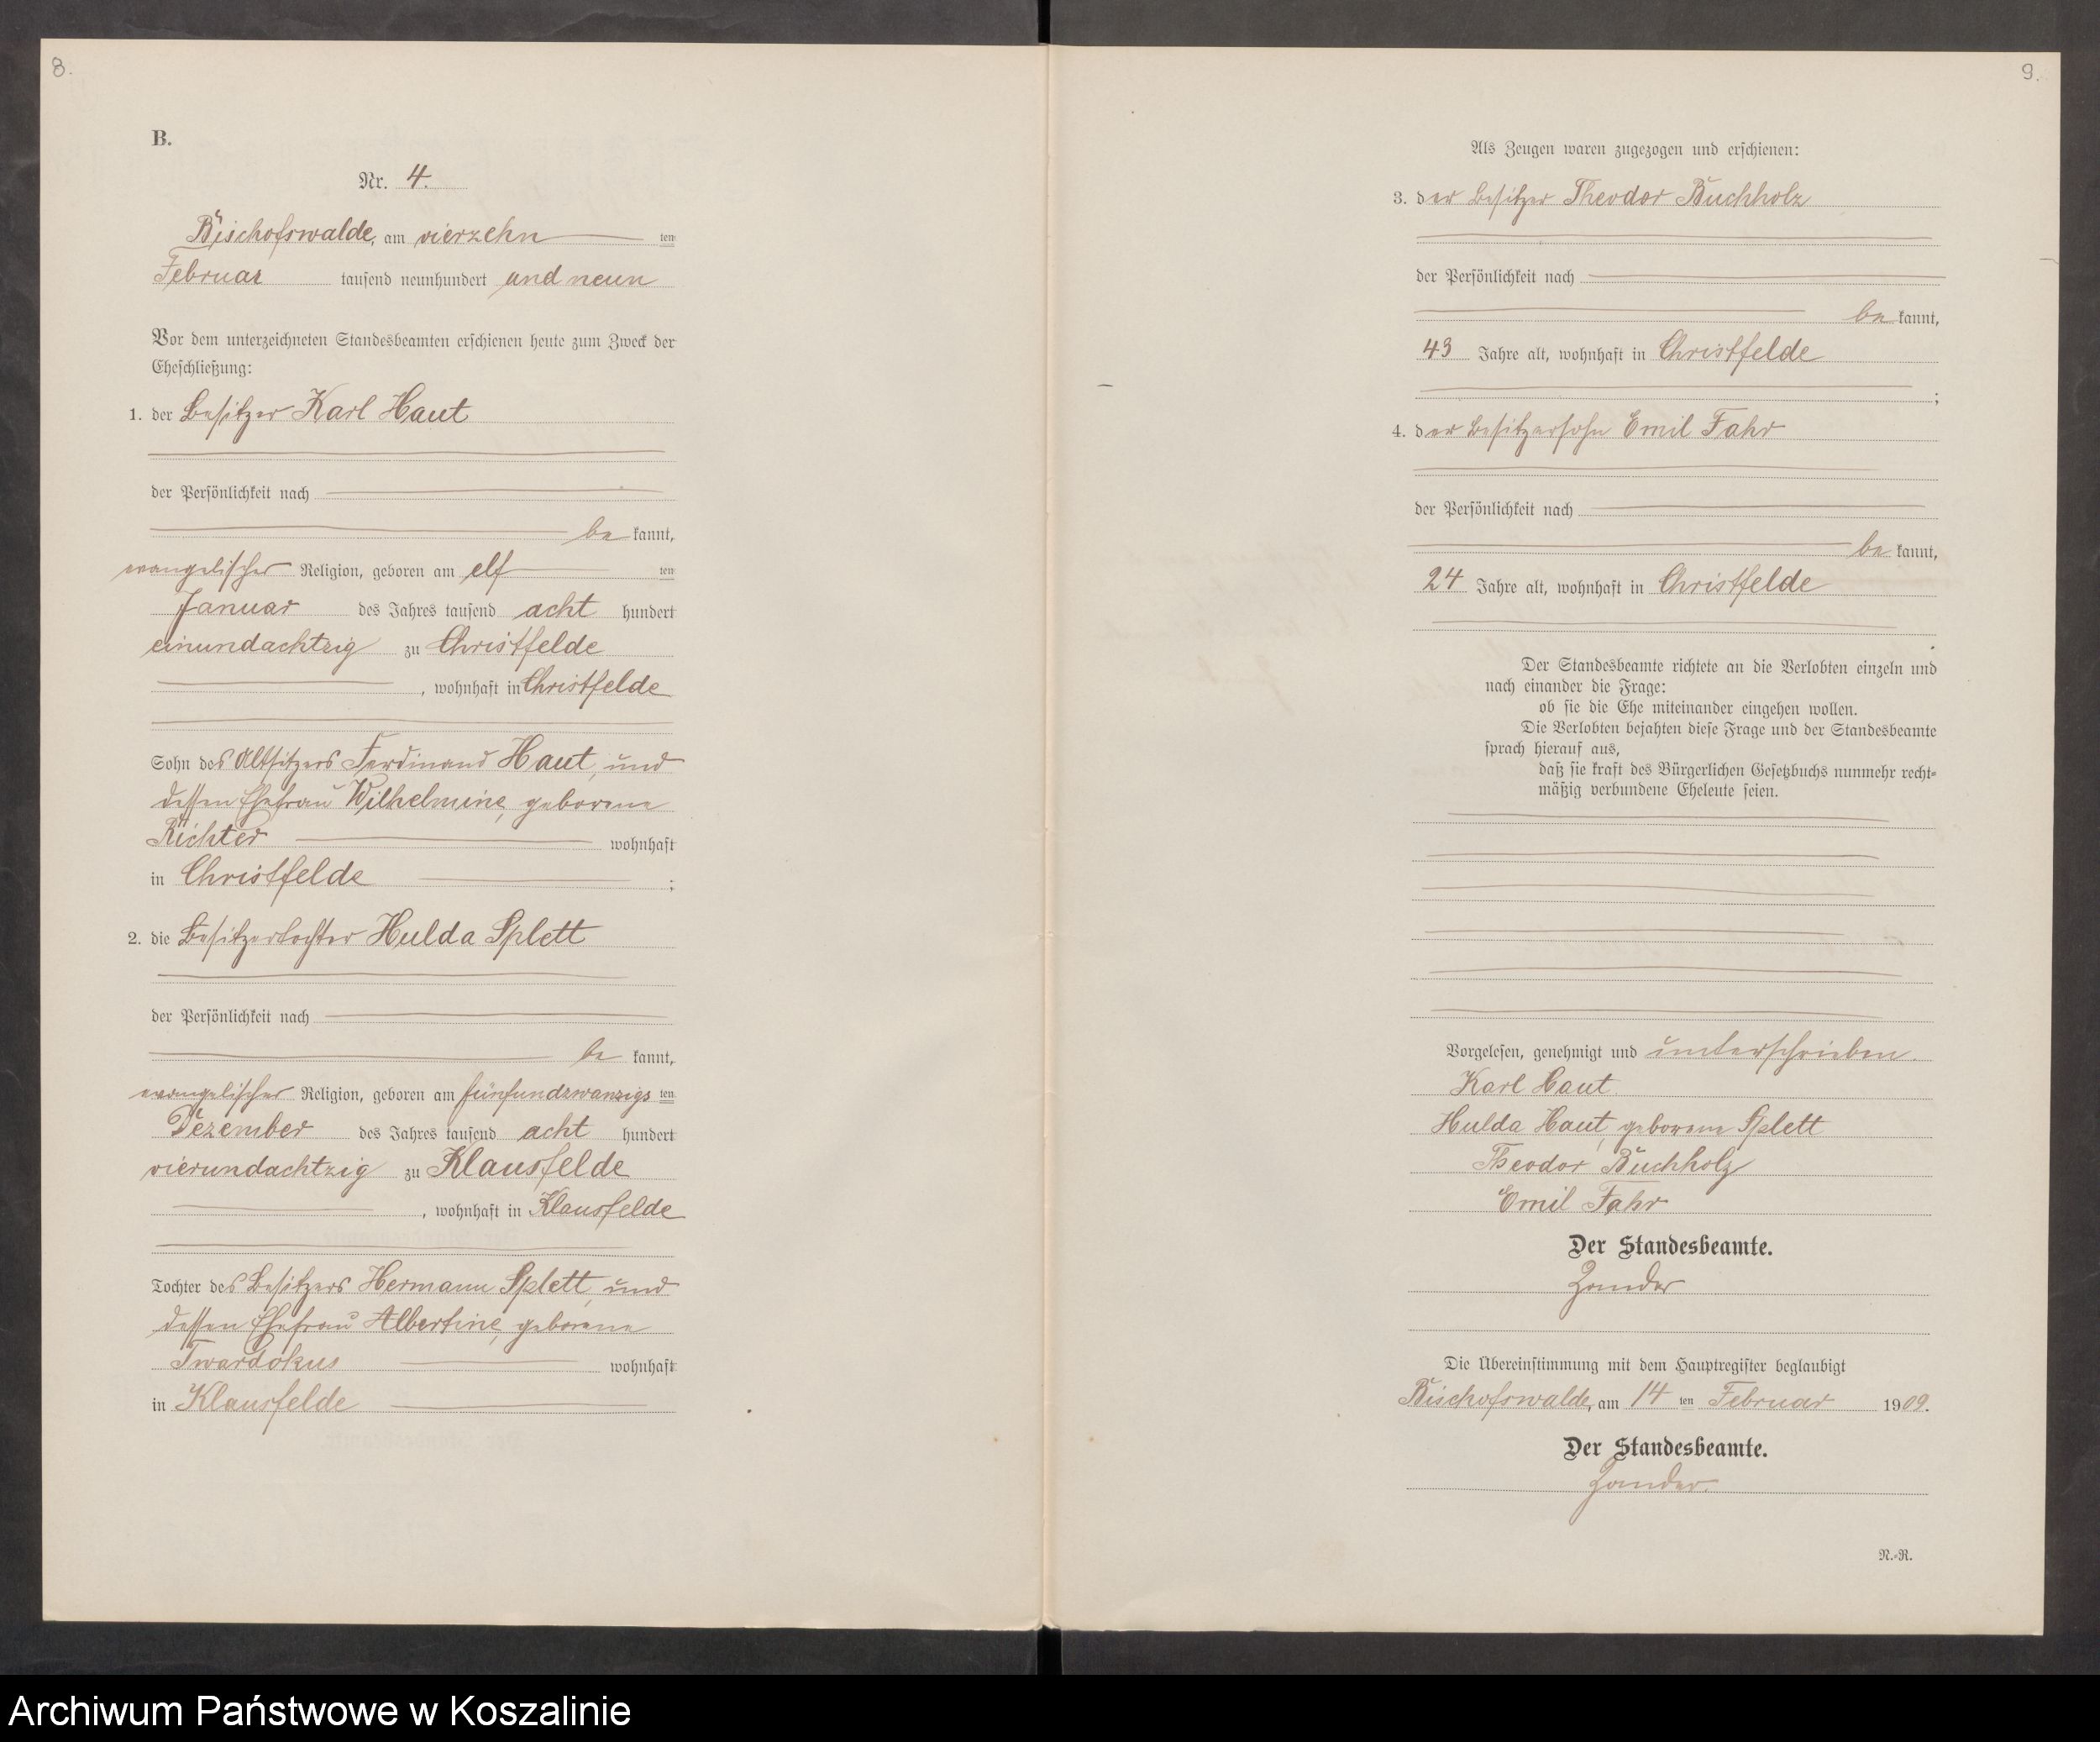 8.
B.
Nr. 4.
Bischofswalde, am vierzehn ten
Februar tausend neunhundert und neun
Vor dem unterzeichneten Standesbeamten erschienen heute zum Zweck der
Eheschließung:
1. der Besitzer Karl Haut
der Persönlichkeit nach
be kannt,
evangelischer Religion, geboren am elf ten
Januar des Jahres tausend acht hundert
einundachtzig zu Christfelde
, wohnhaft in Christfelde
Sohn des Altsitzers Ferdinand Haut, und
dessen Ehefrau Wilhelmine, geborene
Richter wohnhaft
in Christfelde ;
2. die Besitzertochter Hulda Splett
der Persönlichkeit nach
be kannt,
evangelischer Religion, geboren am fünfundzwanzigs ten
Dezember des Jahres tausend acht hundert
vierundachtzig zu Klausfelde
, wohnhaft in Klausfelde
Tochter des Besitzers Hermann Splett, und
dessen Ehefrau Albertine, geborene
Twardokus wohnhaft
in Klausfelde
9.
Als Zeugen waren zugezogen und erschienen:
3. der Besitzer Theodor Buchholz
der Persönlichkeit nach
be kannt,
43 Jahre alt, wohnhaft in Christfelde
;
4. der Besitzersohn Emil Fahr
der Persönlichkeit nach
be kannt,
24 Jahre alt, wohnhaft in Christfelde
.
Der Standesbeamte richtete an die Verlobten einzeln und
nach einander die Frage:
ob sie die Ehe miteinander eingehen wollen.
Die Verlobten bejahten diese Frage und der Standesbeamte
sprach hierauf aus,
daß sie kraft des Bürgerlichen Gesetzbuchs nunmehr recht-
mäßig verbundene Eheleute seien.
Vorgelesen, genehmigt und unterschrieben.
Karl Haut
Hulda Haut, geborene Splett
Theodor Buchholz
Emil Fahr
Der Standesbeamte.
Zander
Die Übereinstimmung mit dem Hauptregister beglaubigt
Bischofswalde, am 14 ten Februar 1909.
Der Standesbeamte.
Zander.
N.-R.
Archiwum Państwowe w Koszalinie